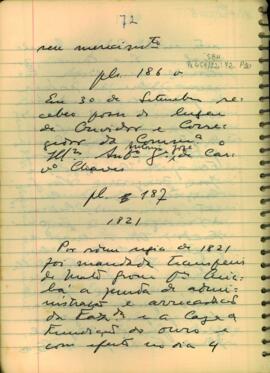 72
seu merecimto
pls. 186 v
Em 30 de Setembro re-
cebeu posse do lugar
de Ouvidor e Corre-
gedor da Comca o
Antonio José
de Car-
vo Chaves
pl. 187
1821
Por ordem regia de 1821
foi mandada transferir
de Mato Grosso pa Cuia-
bá a junta de admi-
nistração e arrecadação
da Fazda e a Caza de
Fundição do ouro e
com efeito no dia 4